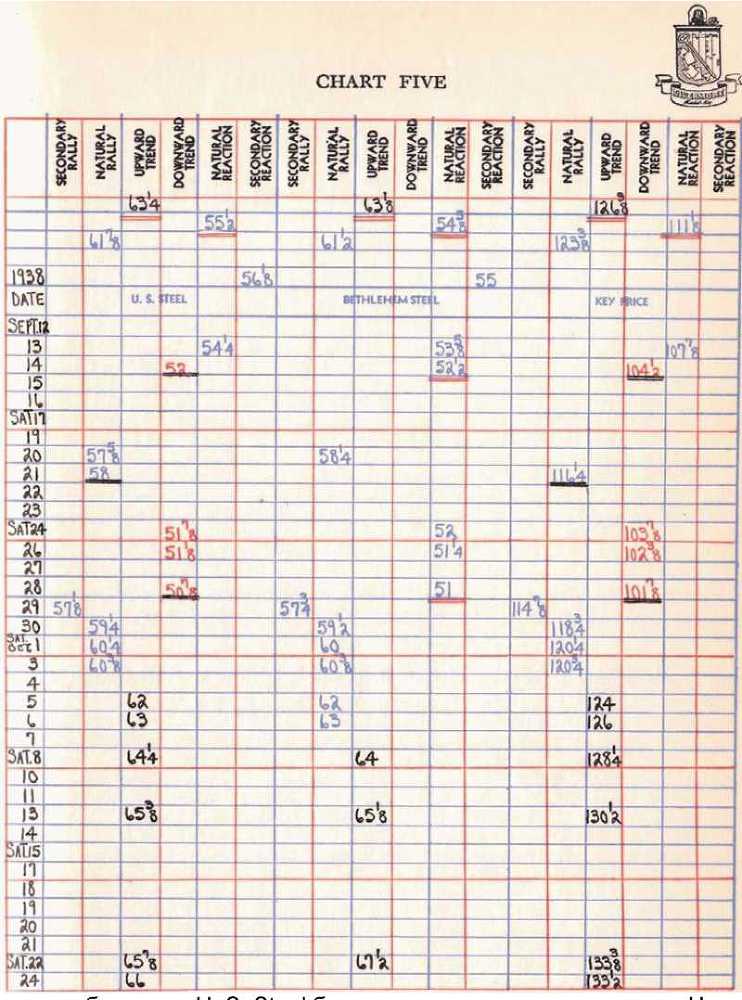 CHART FIVE
SECONDARY RALLY NATURAL RALLY UPWARD TREND DOWNWARD TREND NATURAL REACTION SECONDARY REACTION SECONDARY RALLY NATURAL RALLY UPWARD TREND DOWNWARD TREND NATURAL REACTION SECONDARY REACTION SECONDARY RALLY NATURAL RALLY UPWARD TREND DOWNWARD TREND NATURAL REACTION SECONDARY REACTION
63 1/4 63 1/8 126 3/8
55 1/2 54 3/8 111 1/8
61 7/8 61 1/2 123 3/8
1938 56 1/8 55
DATE U. S. STEEL BETHLEHEM STEEL KEY PRICE
SEPT.12
13 54 1/4 53 5/8 107 7/8
14 52 52 1/2 104 1/2
15
16
SAT17
19
20 57 5/8 58 1/4
21 58 116 1/4
22
23
SAT24 51 7/8 52 103 7/8
26 51 1/8 51 1/4 102 3/8
27
28 50 7/8 51 101 7/8
29 57 1/8 57 3/4 114 7/8
30 59 1/4 59 1/2 118 3/4
SAT. OCT 1 60 1/4 60 120 1/4
3 60 3/8 60 3/8 120 3/4
4
5 62 62 124
6 63 63 126
7
SAT.8 64 1/4 64 128 1/4
10
11
13 65 3/8 65 1/8 130 1/2
14
SAT.15
17
18
19
20
21
SAT.22 65 7/8 67 1/2 133 3/8
24 66 133 1/2